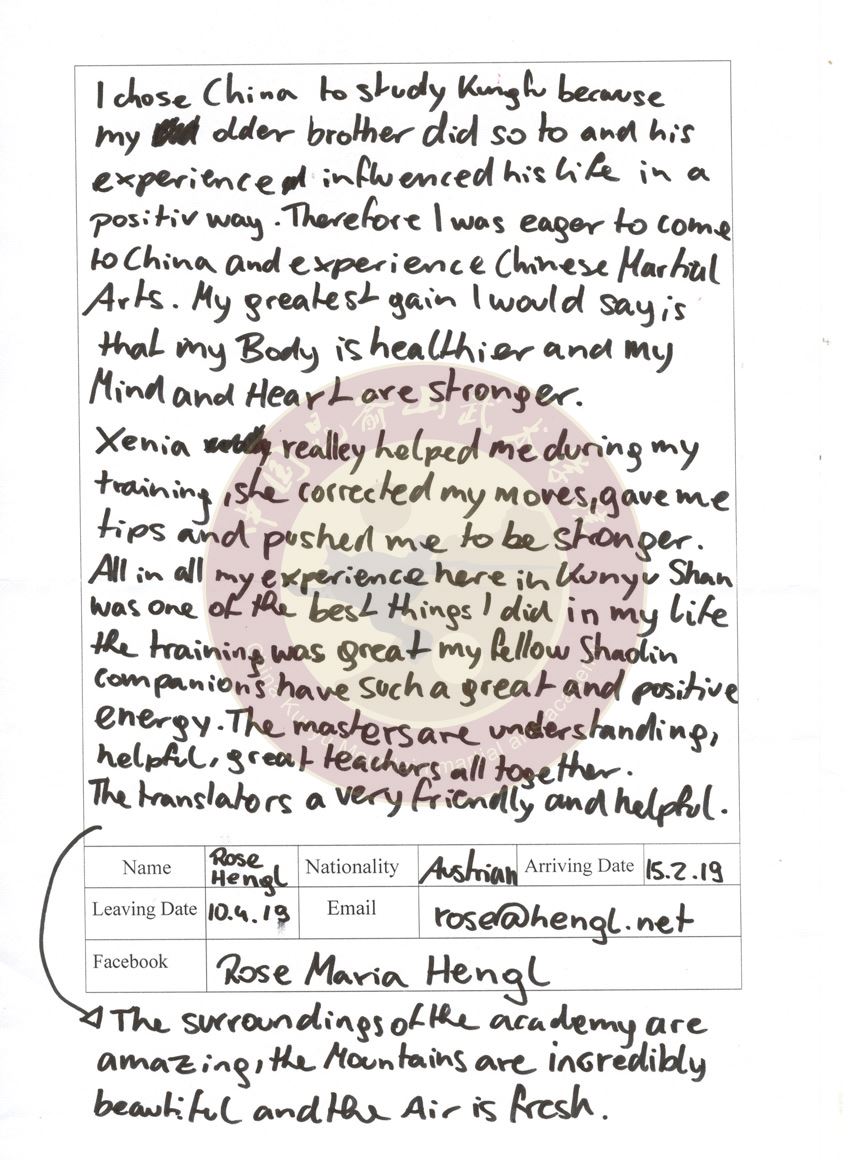 I chose China to study Kungfu because
my older brother did so to and his
experience influenced his life in a
positiv way. Therefore I was eager to come
to China and experience Chinese Martial
Arts. My greatest gain I would say is
that my Body is healthier and my
Mind and Heart are stronger.
Xenia realley helped me during my
training, she corrected my moves, gave me
tips and pushed me to be stronger.
All in all my experience here in Kunyu Shan
was one of the best things I did in my life
the training was great my fellow Shaolin
companions have such a great and positive
energy. The masters are understanding,
helpful, great teachers all together.
The translators a very friendly and helpful.
Name Rose Hengl Nationality Austrian Arriving Date 15.2.19
Leaving Date 10.4.19 Email rose@hengl.net
Facebook Rose Maria Hengl
The surroundings of the academy are
amazing, the Mountains are incredibly
beautiful and the Air is fresh.